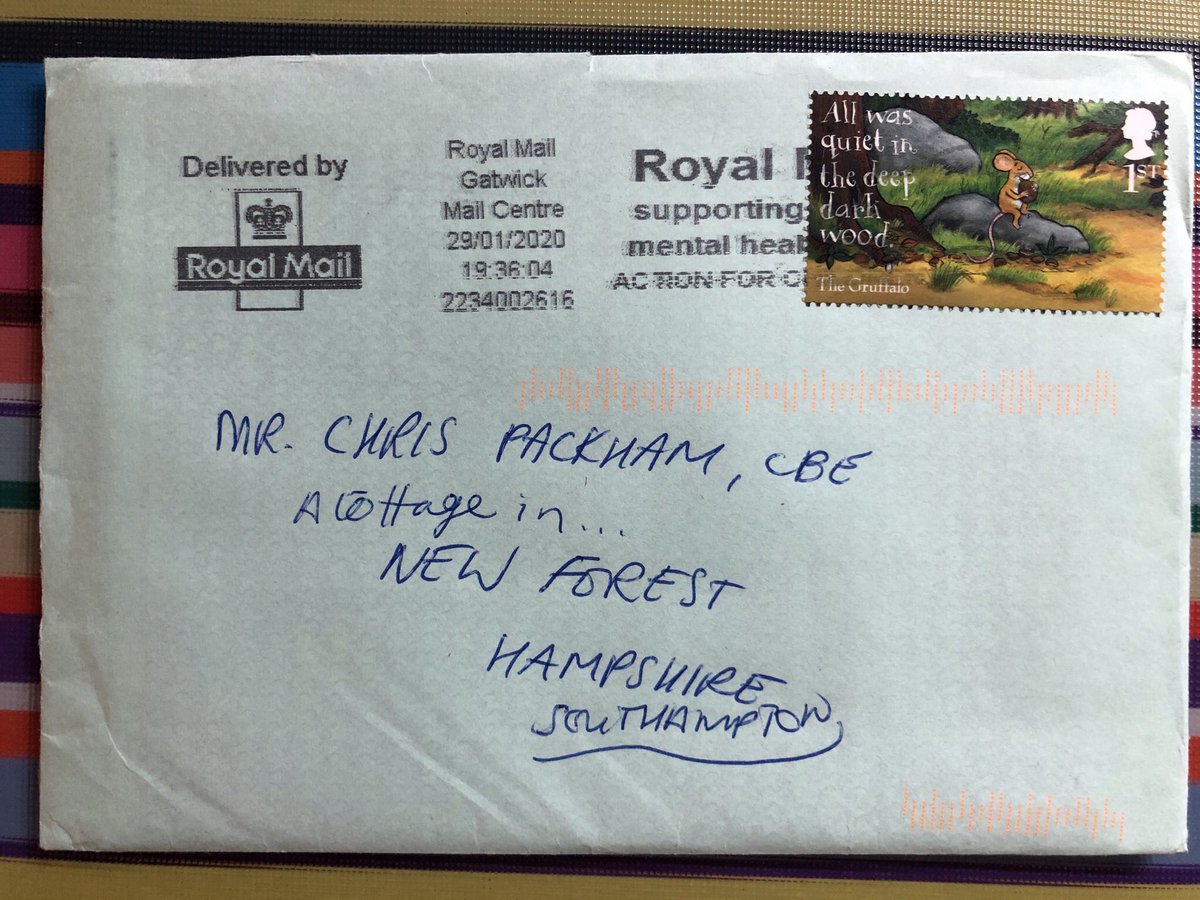 Delivered by
Royal Mail
Royal Mail
Gatwick
Mail Centre
29/01/2020
19:36:04
2234002616
Royal
supporting
mental
ACTION FOR
All was
quiet in
the deep
dark
wood.
1ST
The Gruffalo
MR. CHRIS PACKHAM, CBE
A Cottage in...
NEW FOREST
HAMPSHIRE
SOUTHAMPTON